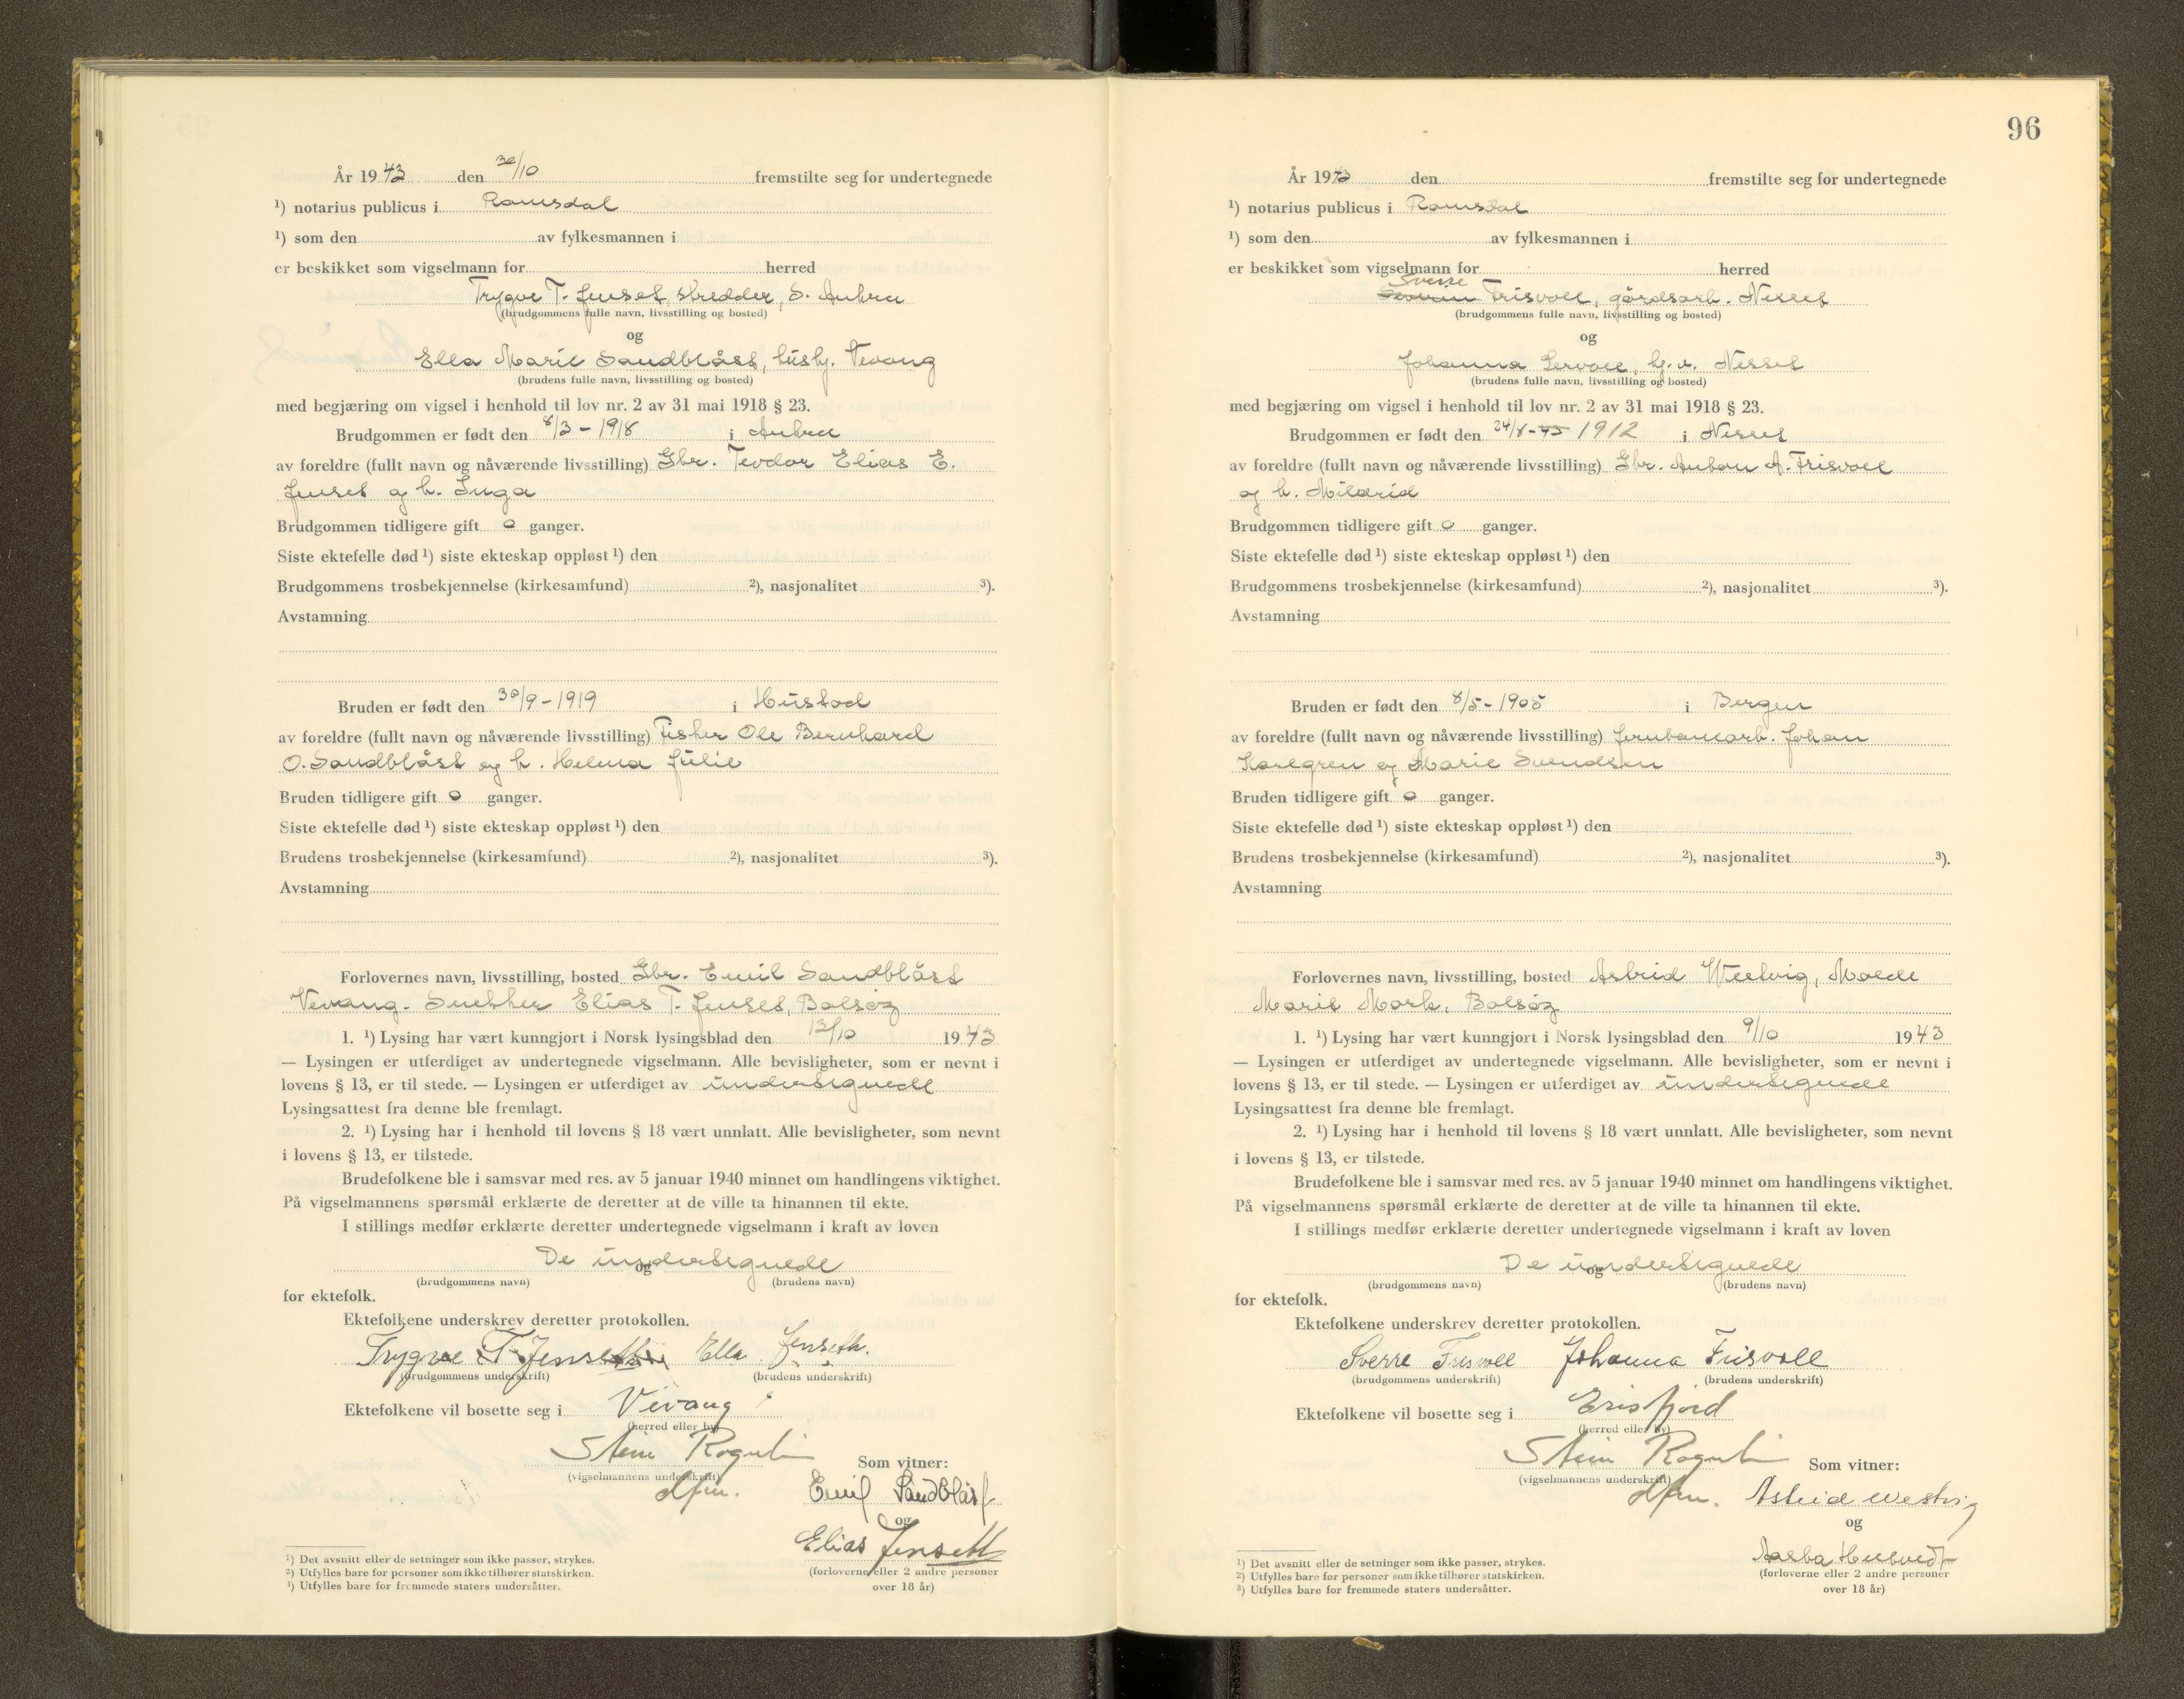 År 1943 den 30/10 fremstilte seg for undertegnede
¹) notarius publicus i Romsdal
¹) som den av fylkesmannen i
er beskikket som vigselmann for herred
Trygve T. Jenset, skredder, S. Aukra
(brudgommens fulle navn, livsstilling og bosted)
og
Ella Marie Sandblåst, hush. Vevang
(brudens fulle navn, livsstilling og bosted)
med begjæring om vigsel i henhold til lov nr. 2 av 31 mai 1918 § 23.
Brudgommen er født den 8/3-1918 i Aukra
av foreldre (fullt navn og nåværende livsstilling) Gbr. Teodor Elias E.
Jenset og h. Inga
Brudgommen tidligere gift 0 ganger.
Siste ektefelle død ¹) siste ekteskap oppløst ¹) den
Brudgommens trosbekjennelse (kirkesamfund) ²), nasjonalitet ³).
Avstamning
Bruden er født den 30/9-1919 i Hustad
av foreldre (fullt navn og nåværende livsstilling) Fisker Ole Bernhard
O. Sandblåst og h. Helma Julie
Bruden tidligere gift 0 ganger.
Siste ektefelle død ¹) siste ekteskap oppløst ¹) den
Brudens trosbekjennelse (kirkesamfund) ²), nasjonalitet ³).
Avstamning
Forlovernes navn, livsstilling, bosted Gbr. Emil Sandblåst
Vevang. Snekker Elias T. Jenset, Bolsøy
1. ¹) Lysing har vært kunngjort i Norsk lysingsblad den 13/10 1943
— Lysingen er utferdiget av undertegnede vigselmann. Alle bevisligheter, som er nevnt i
lovens § 13, er til stede. — Lysingen er utferdiget av undertegnede
Lysingsattest fra denne ble fremlagt.
2. ¹) Lysing har i henhold til lovens § 18 vært unnlatt. Alle bevisligheter, som nevnt
i lovens § 13, er tilstede.
Brudefolkene ble i samsvar med res. av 5 januar 1940 minnet om handlingens viktighet.
På vigselmannens spørsmål erklærte de deretter at de ville ta hinannen til ekte.
I stillings medfør erklærte deretter undertegnede vigselmann i kraft av loven
De undertegnede
og
(brudgommens navn) (brudens navn)
for ektefolk.
Ektefolkene underskrev deretter protokollen.
Trygve T. Jenseth Ella Jenseth.
(brudgommens underskrift) (brudens underskrift)
Ektefolkene vil bosette seg i Vevang
(herred eller by)
Stein Rognli
(vigselmannens underskrift) Som vitner:
dfm.
Emil Sandblåst
og
Elias Jenseth
(forloverne eller 2 andre personer
over 18 år)
¹) Det avsnitt eller de setninger som ikke passer, strykes.
²) Utfylles bare for personer som ikke tilhører statskirken.
³) Utfylles bare for fremmede staters undersåtter.
96
År 1943 den fremstilte seg for undertegnede
¹) notarius publicus i Romsdal
¹) som den av fylkesmannen i
er beskikket som vigselmann for herred
Sverre Frisvoll, gårdsarb. Nesset
(brudgommens fulle navn, livsstilling og bosted)
og
Johanna Lervoll, Nesset
(brudens fulle navn, livsstilling og bosted)
med begjæring om vigsel i henhold til lov nr. 2 av 31 mai 1918 § 23.
Brudgommen er født den 24/8-1912 i Nesset
av foreldre (fullt navn og nåværende livsstilling) Gbr. Anton A. Frisvoll
og h. Mildrid
Brudgommen tidligere gift 0 ganger.
Siste ektefelle død ¹) siste ekteskap oppløst ¹) den
Brudgommens trosbekjennelse (kirkesamfund) ²), nasjonalitet ³).
Avstamning
Bruden er født den 8/5-1905 i Bergen
av foreldre (fullt navn og nåværende livsstilling) Jernbanearb. Johan
Karlgren og Marie Svendsen
Bruden tidligere gift 0 ganger.
Siste ektefelle død ¹) siste ekteskap oppløst ¹) den
Brudens trosbekjennelse (kirkesamfund) ²), nasjonalitet ³).
Avstamning
Forlovernes navn, livsstilling, bosted Astrid Westvig, Molde
Marit Mork, Bolsøy
1. ¹) Lysing har vært kunngjort i Norsk lysingsblad den 9/10 1943
— Lysingen er utferdiget av undertegnede vigselmann. Alle bevisligheter, som er nevnt i
lovens § 13, er til stede. — Lysingen er utferdiget av undertegnede
Lysingsattest fra denne ble fremlagt.
2. ¹) Lysing har i henhold til lovens § 18 vært unnlatt. Alle bevisligheter, som nevnt
i lovens § 13, er tilstede.
Brudefolkene ble i samsvar med res. av 5 januar 1940 minnet om handlingens viktighet.
På vigselmannens spørsmål erklærte de deretter at de ville ta hinannen til ekte.
I stillings medfør erklærte deretter undertegnede vigselmann i kraft av loven
De undertegnede
og
(brudgommens navn) (brudens navn)
for ektefolk.
Ektefolkene underskrev deretter protokollen.
Sverre Frisvoll Johanna Frisvoll
(brudgommens underskrift) (brudens underskrift)
Ektefolkene vil bosette seg i Erisfjord
(herred eller by)
Stein Rognli
(vigselmannens underskrift) Som vitner:
dfm. Astrid Westvig
og
(forloverne eller 2 andre personer
over 18 år)
¹) Det avsnitt eller de setninger som ikke passer, strykes.
²) Utfylles bare for personer som ikke tilhører statskirken.
³) Utfylles bare for fremmede staters undersåtter.